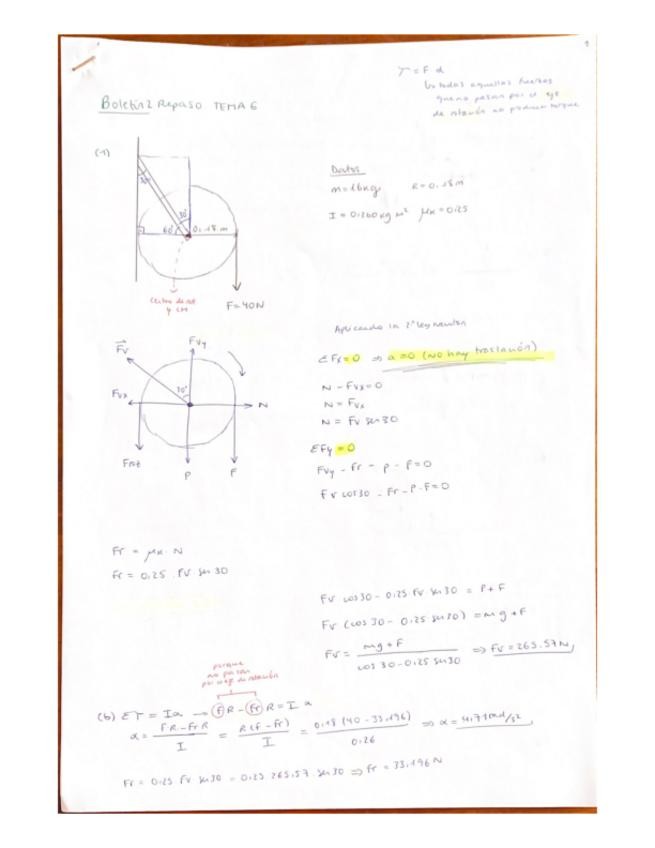 1
τ = F d
↳ todas aquellas fuerzas
que no pasan por el eje
de rotación no producen torque
Boletín 2 Repaso TEMA 6
(1)
30°
30°
60°
0.18 m
Centro de rot
y CM
F=40N
Datos
m=16kg R=0.18m
I=0.260 kg m² μk=0.25
Aplicando la 2ª ley newton
ΣFx=0 ⇒ a=0 (No hay traslación)
N - Fvx=0
N = Fvx
N = Fv sen 30
ΣFy=0
Fvy - Fr - P - F=0
Fv cos30 - Fr - P - F=0
Fv
Fvy
30°
Fvx
N
P
F
Fr = μk · N
Fr = 0.25 · Fv · sen 30
Fv cos30 - 0.25 Fv sen 30 = P + F
Fv (cos 30 - 0.25 sen 30) = mg + F
Fv = mg + F / cos 30 - 0.25 sen 30 ⇒ Fv = 265.57N
porque
no pasan
por eje de rotación
(b) ΣT = Iα → F R - Fr R = I α
α = FR - Fr R / I = R (F - Fr) / I = 0.18 (40 - 33.196) / 0.26 ⇒ α = 4.71 rad/s²
Fr = 0.25 Fv sen 30 = 0.25 265.57 · sen 30 ⇒ Fr = 33.196 N